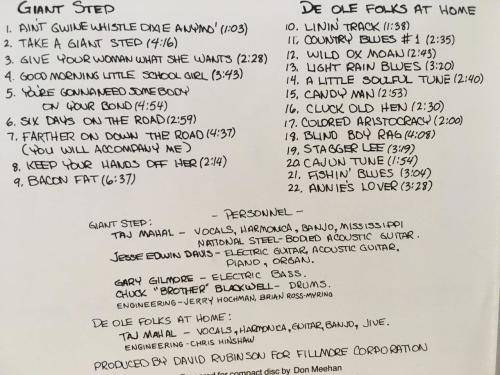 GIANT STEP
1. AIN'T GWINE WHISTLE DIXIE ANYMO' (1:03)
2. TAKE A GIANT STEP (4:16)
3. GIVE YOUR WOMAN WHAT SHE WANTS (2:28)
4. GOOD MORNING LITTLE SCHOOL GIRL (3:43)
5. YOU'RE GONNA NEED SOMEBODY
ON YOUR BOND (4:54)
6. SIX DAYS ON THE ROAD (2:59)
7. FARTHER ON DOWN THE ROAD (4:37)
(YOU WILL ACCOMPANY ME)
8. KEEP YOUR HANDS OFF HER (2:14)
9. BACON FAT (6:37)
DE OLE FOLKS AT HOME
10. LININ' TRACK (1:38)
11. COUNTRY BLUES #1 (2:35)
12. WILD OX MOAN (2:45)
13. LIGHT RAIN BLUES (3:20)
14. A LITTLE SOULFUL TUNE (2:40)
15. CANDY MAN (2:53)
16. CLUCK OLD HEN (2:30)
17. COLORED ARISTOCRACY (2:00)
18. BLIND BOY RAG (4:08)
19. STAGGER LEE (3:19)
20. CAJUN TUNE (1:54)
21. FISHIN' BLUES (3:04)
22. ANNIE'S LOVER (3:28)
- PERSONNEL -
GIANT STEP:
TAJ MAHAL - VOCALS, HARMONICA, BANJO, MISSISSIPPI
NATIONAL STEEL-BODIED ACOUSTIC GUITAR.
JESSE EDWIN DAVIS - ELECTRIC GUITAR, ACOUSTIC GUITAR,
PIANO, ORGAN.
GARY GILMORE - ELECTRIC BASS.
CHUCK "BROTHER" BLACKWELL - DRUMS.
ENGINEERING - JERRY HOCHMAN, BRIAN ROSS-MYRING
DE OLE FOLKS AT HOME:
TAJ MAHAL - VOCALS, HARMONICA, GUITAR, BANJO, JIVE.
ENGINEERING - CHRIS HINSHAW
PRODUCED BY DAVID RUBINSON FOR FILLMORE CORPORATION
for compact disc by Don Meehan